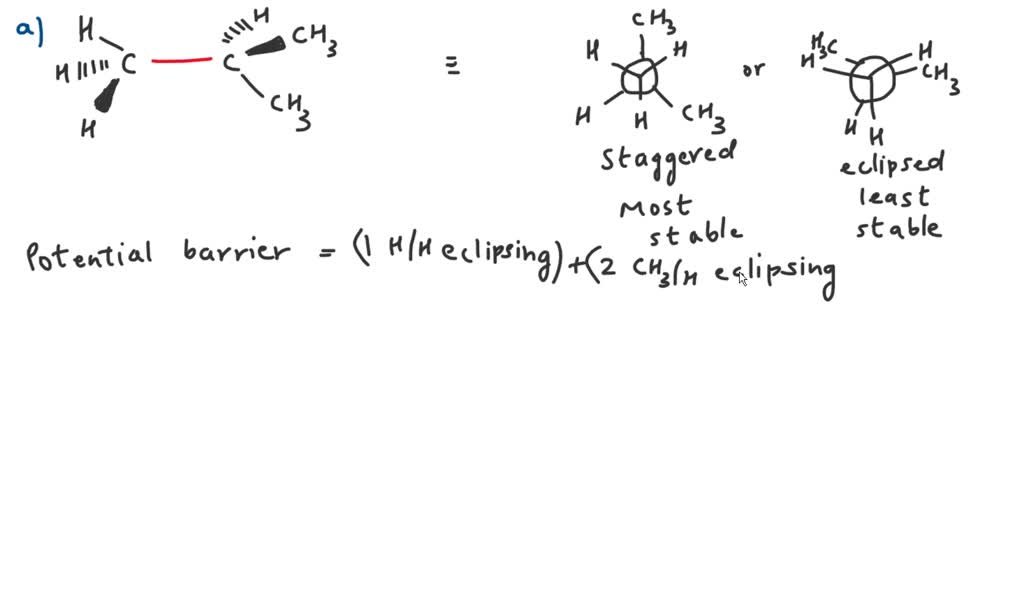 a)
H
H
C
H
C
H
CH3
CH3
≡
CH3
H
H
H
H
CH3
staggered
Most
stable
or
H3C
H
H
CH3
H
H
eclipsed
least
stable
Potential barrier = (1 H/H eclipsing) + (2 CH3/H eclipsing